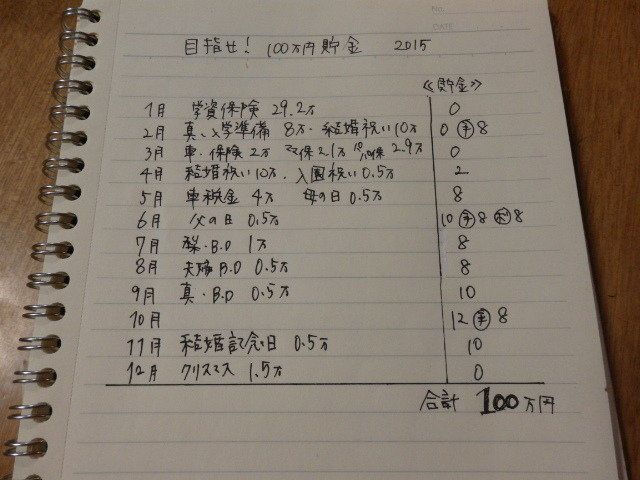 No.
DATE
目指せ! 100万円貯金 2015
《貯金》
1月 学資保険 29.2万 0
2月 真、入学準備 8万・結婚祝い10万 0 ㊍8
3月 車・保険 2万 ママ保 2.1万 パパ保 2.9万 0
4月 結婚祝い10万、入園祝い0.5万 2
5月 車税金 4万 母の日 0.5万 8
6月 父の日 0.5万 10 8 8
7月 梨・B.D 1万 8
8月 夫婦B.D 0.5万 8
9月 真・B.D 0.5万 10
10月 12 8
11月 結婚記念日 0.5万 10
12月 クリスマス 1.5万 0
合計 100万円